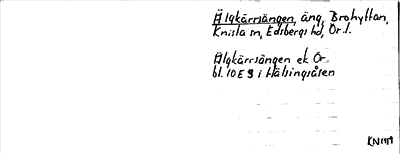 Älgkärrsängen, äng, Brohyttan,
Knista sn, Edsbergs hd, Ör. l.
Älgkärrsängen ek Ör
bl. 10 E 9 i Hälsingsåsen